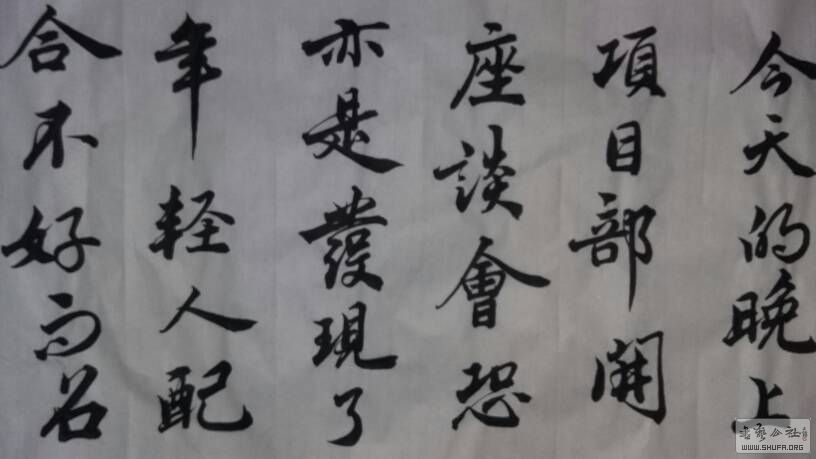 今天的晚上
項目部開
座談會恐
亦是發現了
年轻人配
合不好而名
WWW.SHUFA.ORG